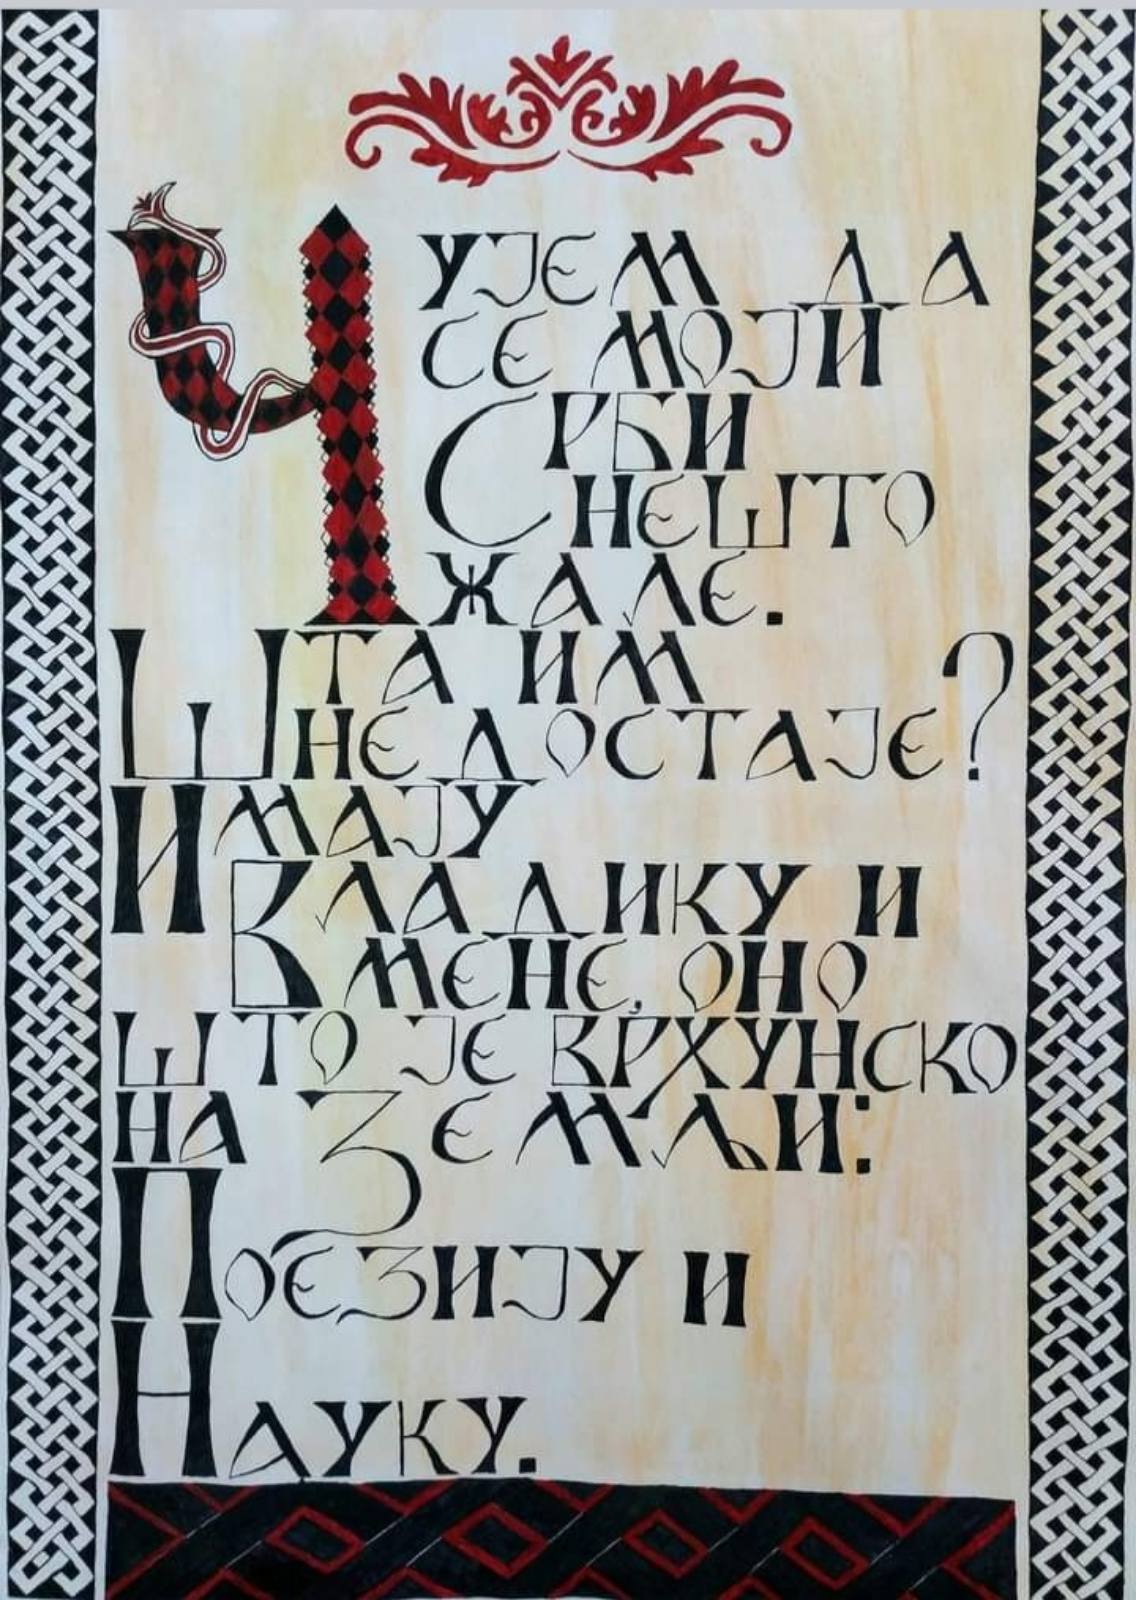 Чујем да
се моји
Срби
нешто
жале.
Шта им
недостаје?
Имају
Владику и
мене, оно
што је врхунско
на Земљи:
Поезију и
Науку.